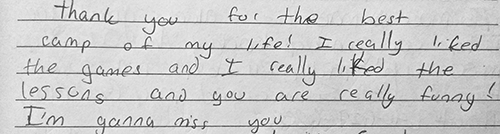 thank you for the best
camp of my life! I really liked
the games and I really liked the
lessons and you are really funny!
I'm ganna miss you